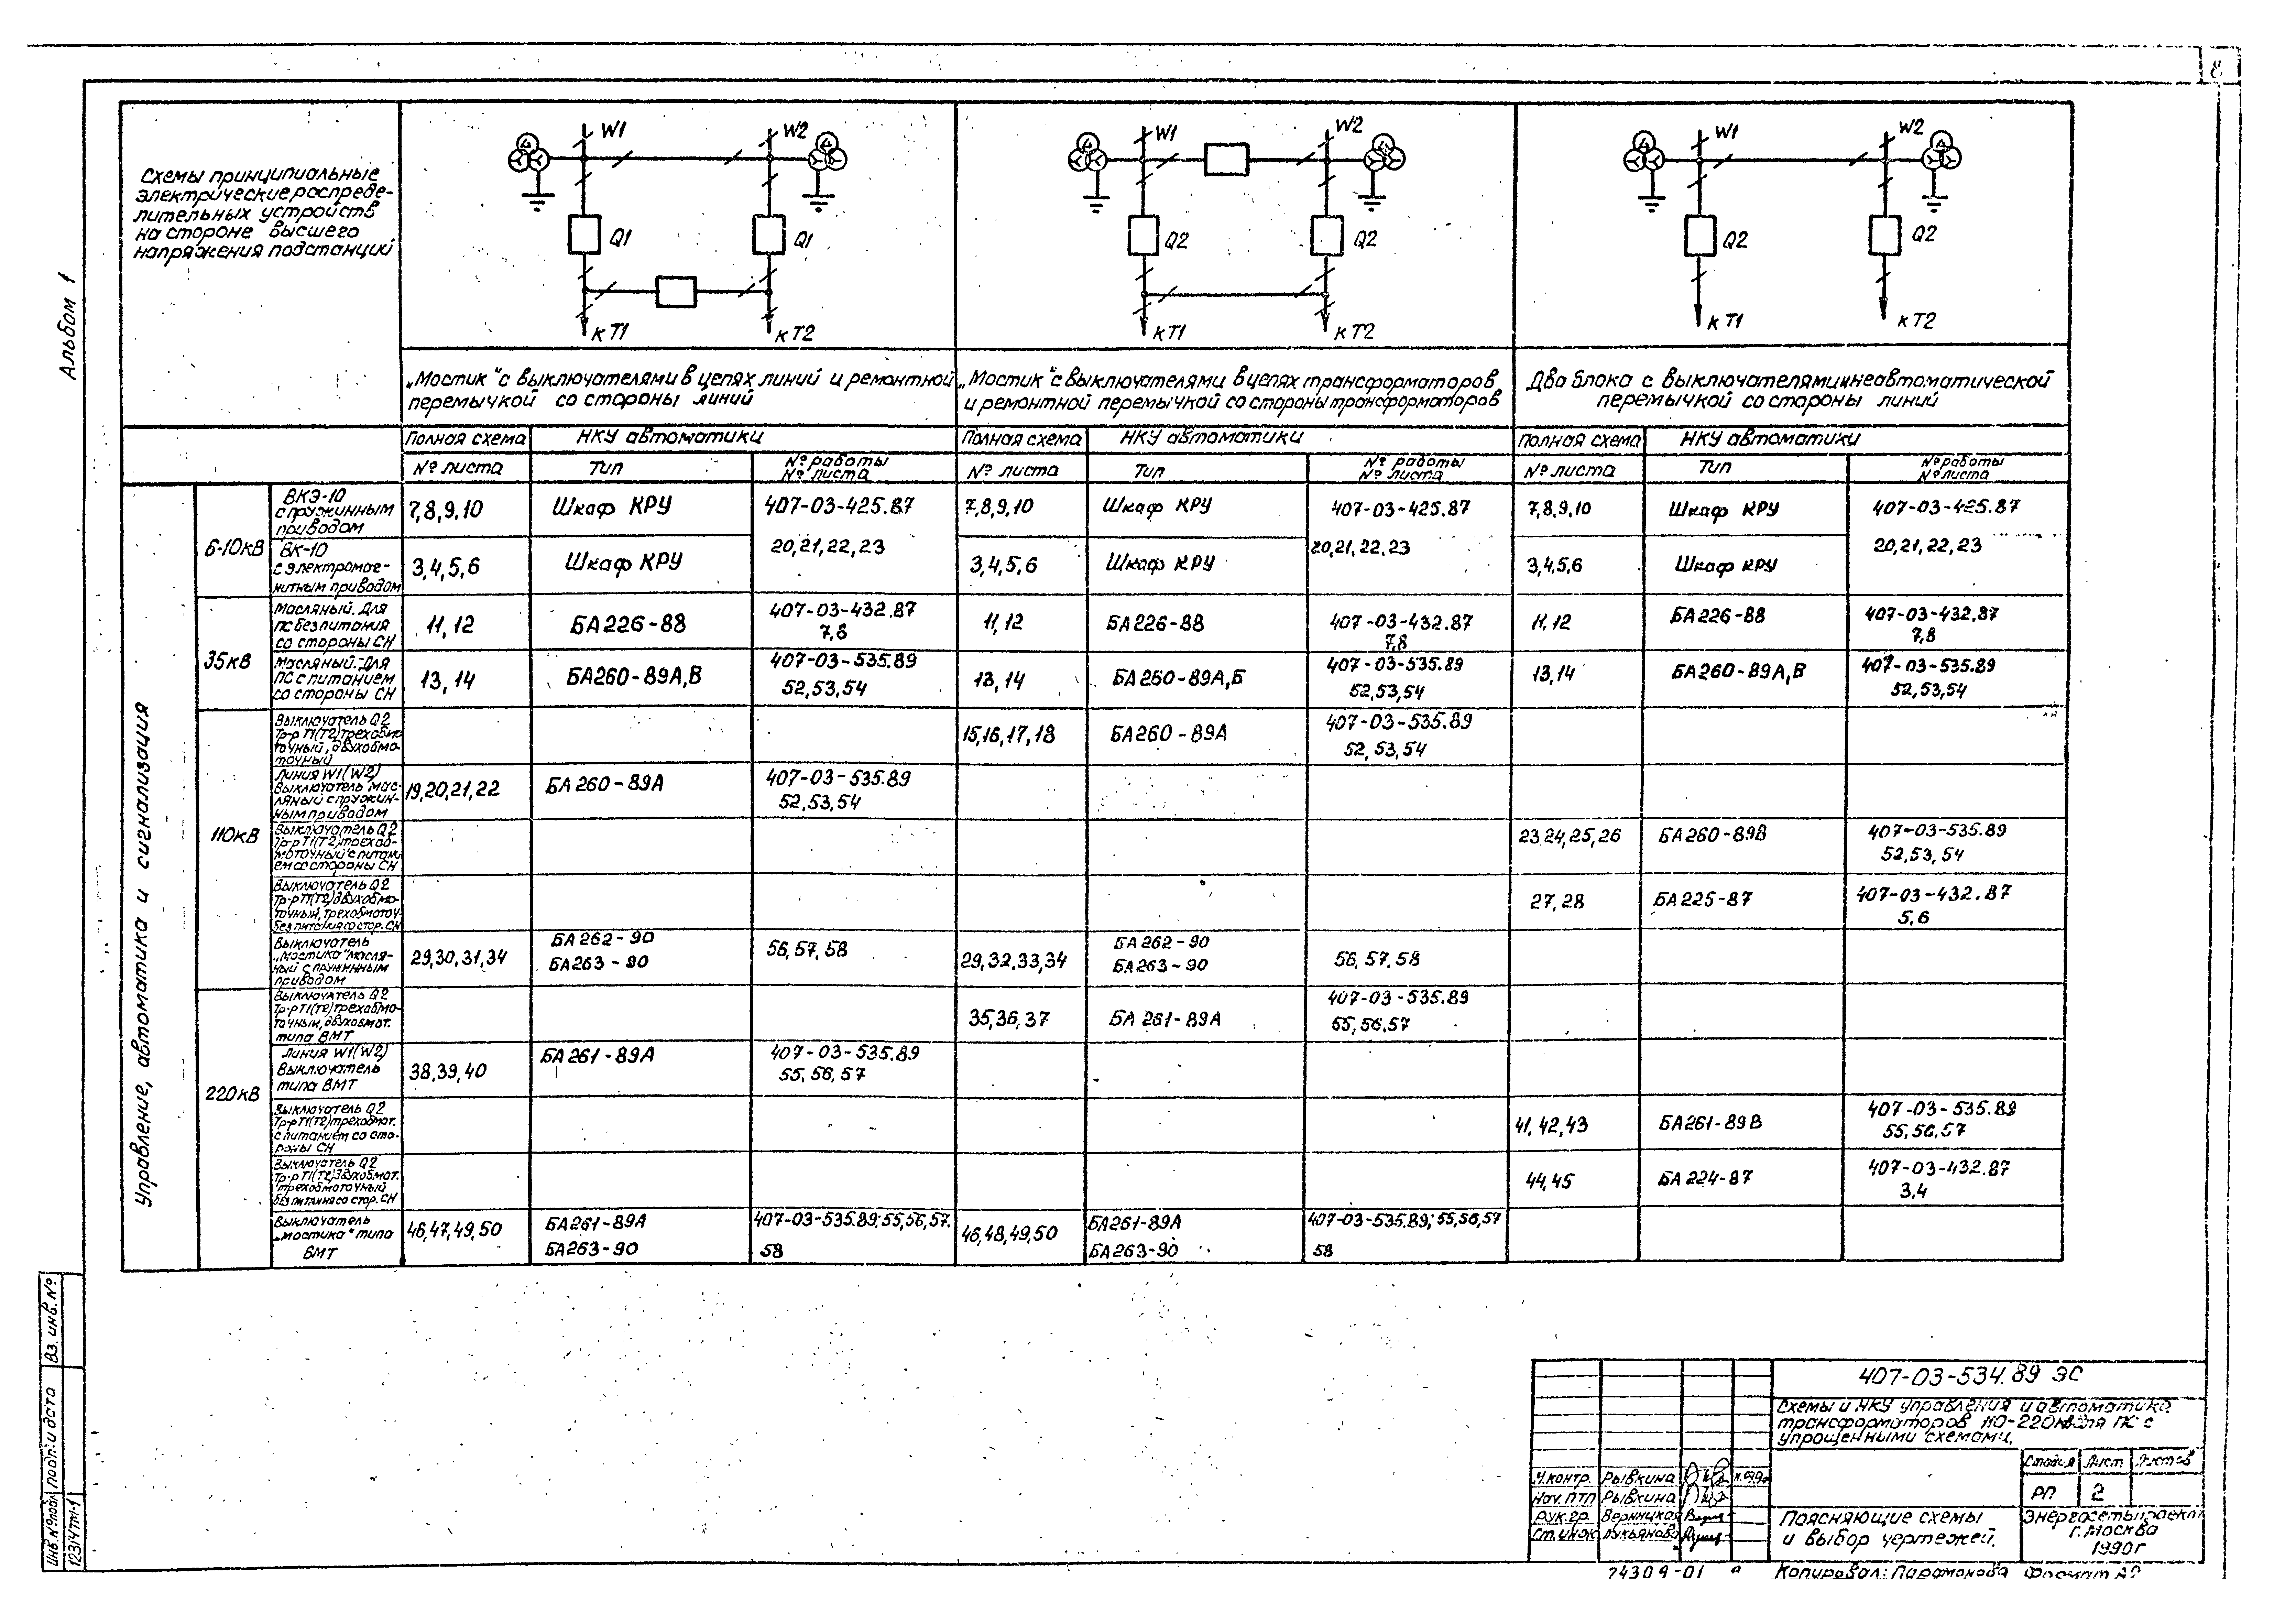 8
Альбом 1
Схемы принципиальные
электрические распреде-
лительных устройств
на стороне высшего
напряжения подстанций
W1
W2
Q1
Q1
к Т1
к Т2
W1
W2
Q2
Q2
к Т1
к Т2
W1
W2
Q2
Q2
к Т1
к Т2
„Мостик" с выключателями в цепях линий и ремонтной
перемычкой со стороны линий
„Мостик" с выключателями в цепях трансформаторов
и ремонтной перемычкой со стороны трансформаторов
Два блока с выключателями и неавтоматической
перемычкой со стороны линий
Полная схема
НКУ автоматики
Полная схема
НКУ автоматики
Полная схема
НКУ автоматики
№ листа
Тип
№ работы
№ листа
№ листа
Тип
№ работы
№ листа
№ листа
Тип
№ работы
№ листа
Управление, автоматика и сигнализация
6-10кВ
ВКЭ-10
с пружинным
приводом
7,8,9,10
Шкаф КРУ
407-03-425.87
7,8,9,10
Шкаф КРУ
407-03-425.87
7,8,9,10
Шкаф КРУ
407-03-425.87
ВК-10
с электромаг-
нитным приводом
3,4,5,6
Шкаф КРУ
20,21,22,23
3,4,5,6
Шкаф КРУ
20,21,22,23
3,4,5,6
Шкаф КРУ
20,21,22,23
35кВ
Масляный. Для
ПС без питания
со стороны СН
11,12
БА226-88
407-03-432.87
7,8
11,12
БА226-88
407-03-432.87
7,8
11,12
БА226-88
407-03-432.87
7,8
Масляный. Для
ПС с питанием
со стороны СН
13,14
БА260-89А,В
407-03-535.89
52,53,54
13,14
БА260-89А,Б
407-03-535.89
52,53,54
13,14
БА260-89А,В
407-03-535.89
52,53,54
110кВ
Выключатель Q2
Тр-р Т1(Т2)трехобмо
точный, двухобмо-
точный
15,16,17,18
БА260-89А
407-03-535.89
52,53,54
Линия W1(W2)
Выключатель мас-
ляный с пружин-
ным приводом
19,20,21,22
БА260-89А
407-03-535.89
52,53,54
Выключатель Q2
Тр-р Т1(Т2)трехоб-
моточный с питани
ем со стороны СН
23,24,25,26
БА260-89В
407-03-535.89
52,53,54
Выключатель Q2
Тр-р Т1(Т2)двухобмо-
точный, трехобмоточ-
без питания со стор. СН
27,28
БА225-87
407-03-432.87
5,6
Выключатель
„мостика" масля-
ный с пружинным
приводом
29,30,31,34
БА262-90
БА263-90
56,57,58
29,32,33,34
БА262-90
БА263-90
56,57,58
220кВ
Выключатель Q2
Тр-р Т1(Т2)трехобмо-
точный, двухобмот.
типа ВМТ
35,36,37
БА261-89А
407-03-535.89
55,56,57
Линия W1(W2)
Выключатель
типа ВМТ
38,39,40
БА261-89А
407-03-535.89
55,56,57
Выключатель Q2
Тр-р Т1(Т2)трехобмот.
с питанием со сто-
роны СН
41,42,43
БА261-89В
407-03-535.89
55,56,57
Выключатель Q2
Тр-р Т1(Т2)двухобмот.
трехобмоточный
без питания со стор. СН
44,45
БА224-87
407-03-432.87
3,4
Выключатель
„мостика" типа
ВМТ
46,47,49,50
БА261-89А
БА263-90
407-03-535.89; 55,56,57.
58
46,48,49,50
БА261-89А
БА263-90
407-03-535.89; 55,56,57
58
Вз. инв. №
Подп. и дата
Инв. № подл.
12314тм-1
407-03-534.89 ЭС
Схемы и НКУ управления и автоматика
трансформаторов 110-220кВ для ПС с
упрощенными схемами.
Стадия
Лист
Листов
РП
2
Н.контр.
Рывкина
Нач. ПТП
Рывкина
Рук.гр.
Ст.инж.
Лукьянова
Поясняющие схемы
и выбор чертежей.
Энергосетьпроект
г. Москва
1990г
74309-01
Копировал: Парамонова
Формат А2